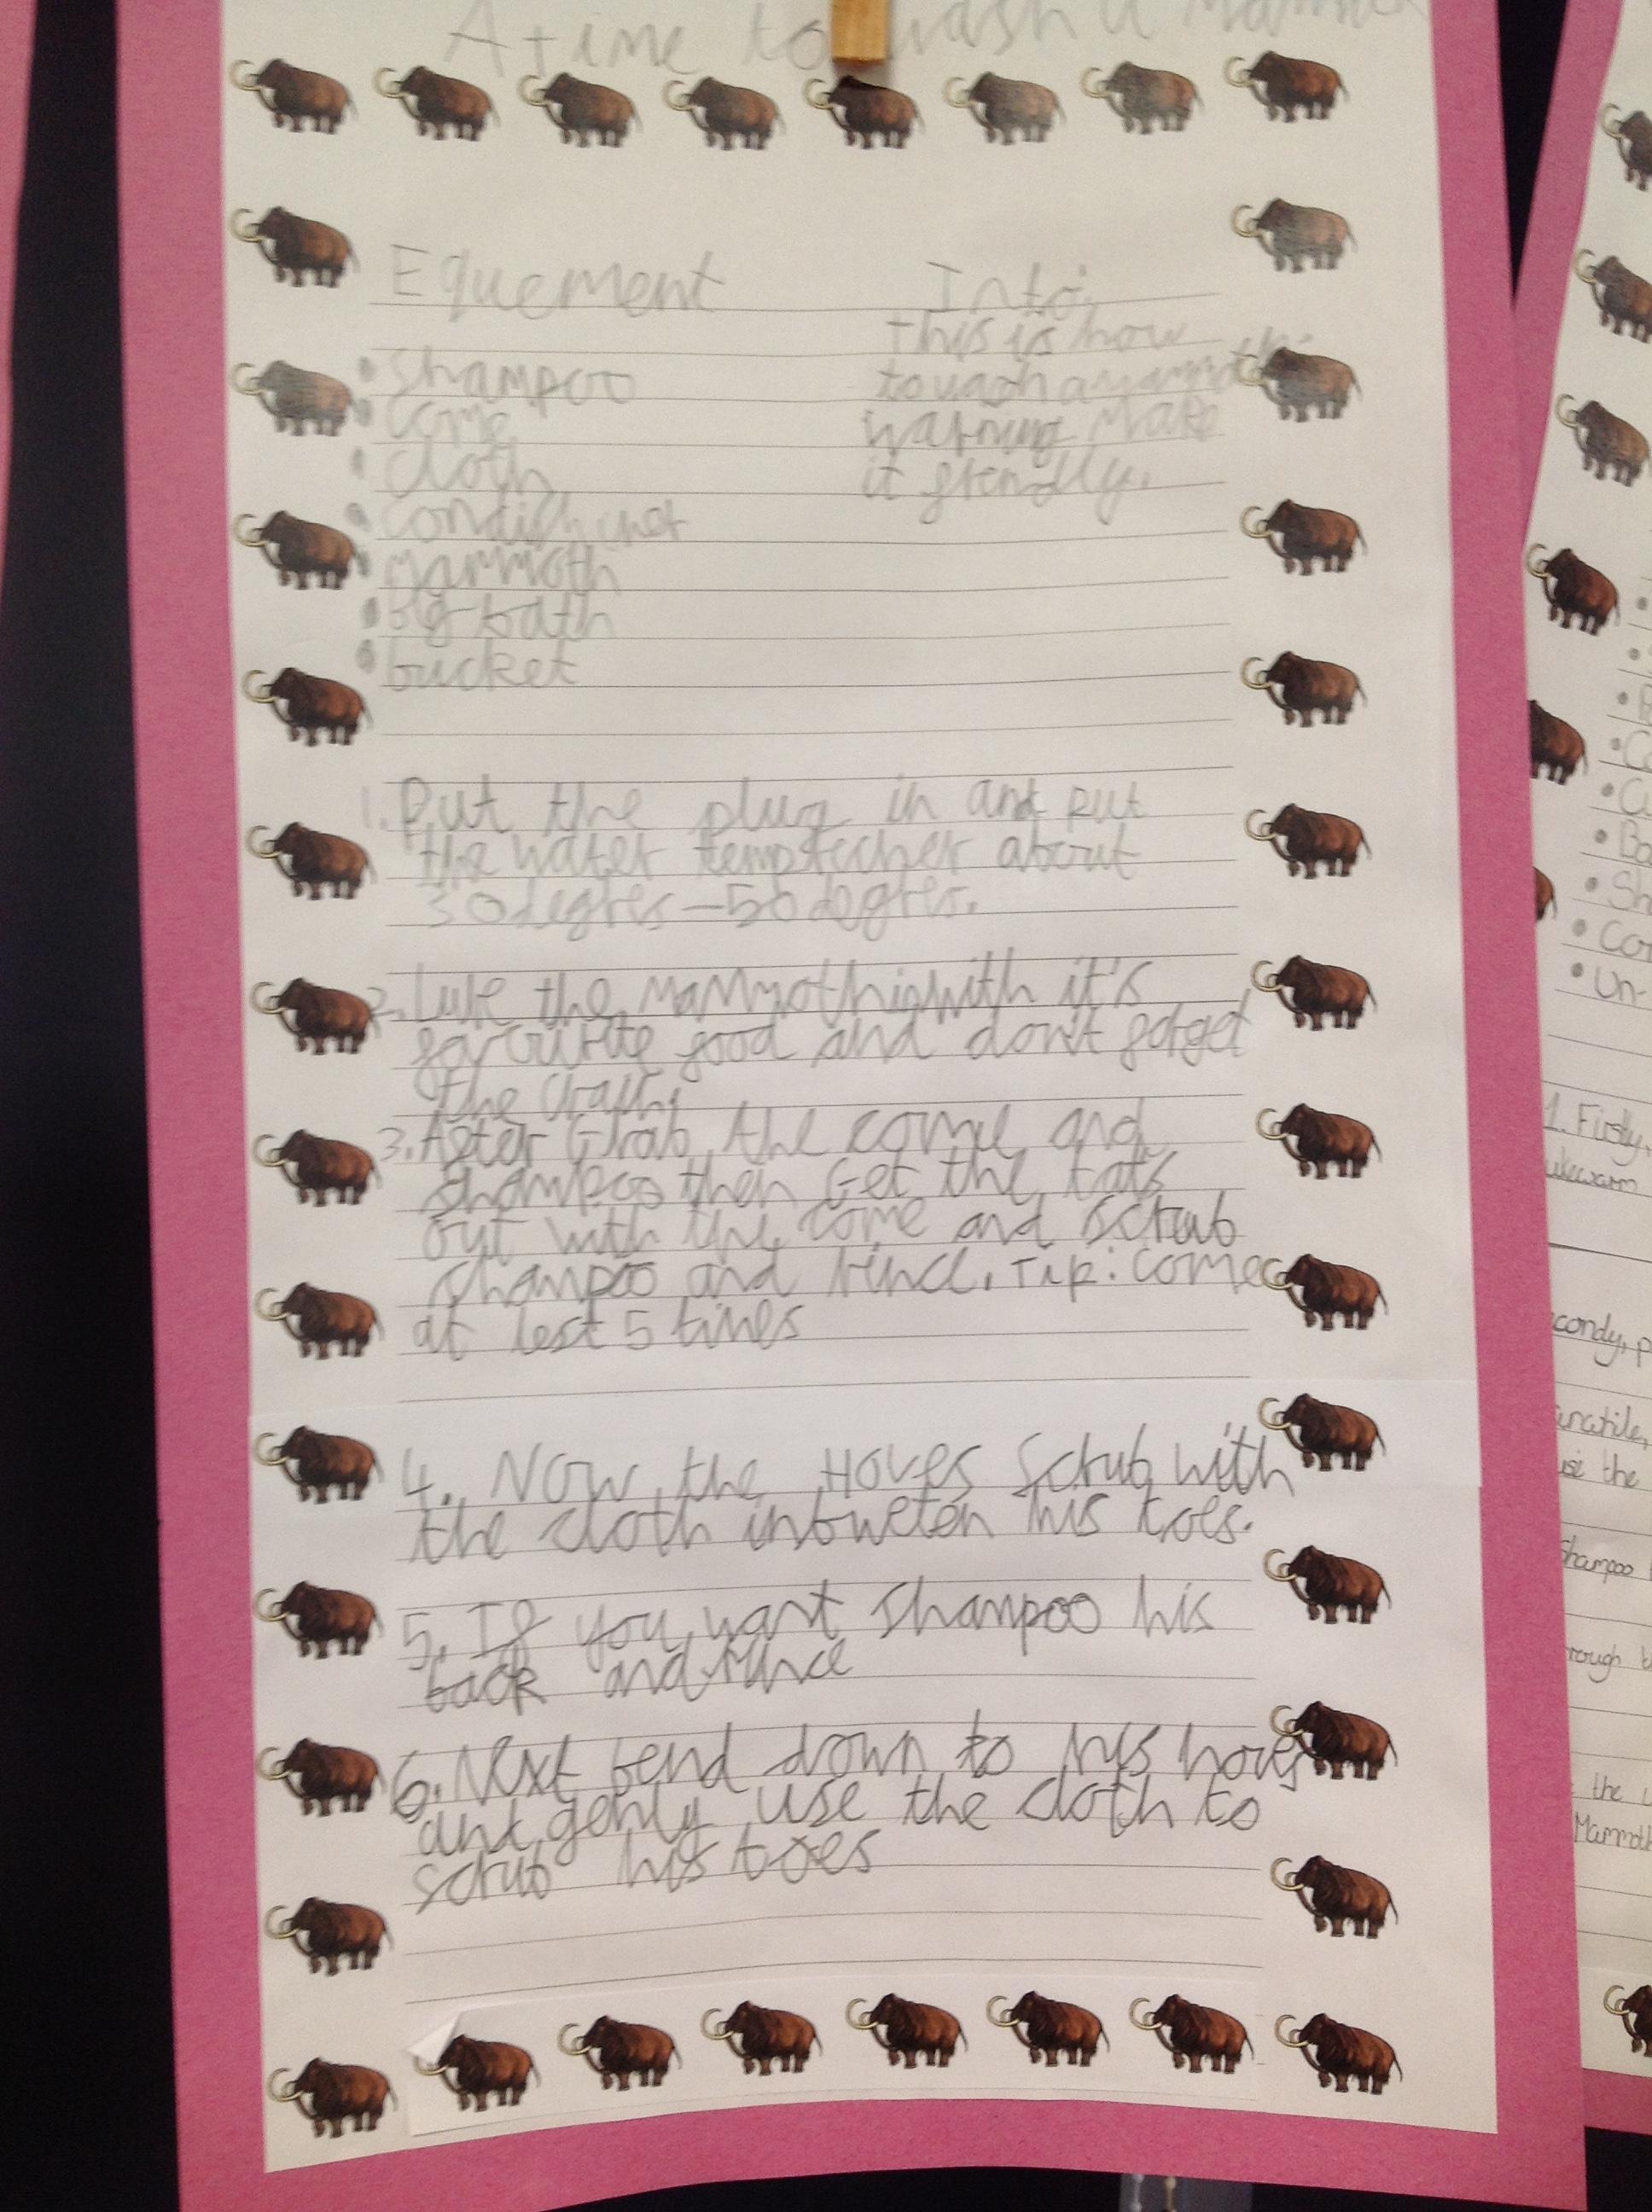 A time to wash a
Equement
shampoo
come
cloth
mammoth
big bath
bucket
Into
this is how
to wash a mammoth
warning make
it frendly.
1. Put the plug in and put
the water temptecher about
30 degres - 50 degres.
2. Lure the Mammoth with it's
favourite food and don't forget
the
3. After Grab the come and
shampoo then Get the tats
out with the come and scrub
shampoo and rince. Tip: come
at lest 5 times
4. Now the Hoves Scrub with
the cloth inbweten his toes.
5. If you want shampoo his
back and rince
6. Next bend down to his hoves
and genly use the cloth to
scrub his toes
1. Firstly,
ukewarm
condy, p
use the
Shampoo
rough
the
Mammoth
Sh
Co
Un-